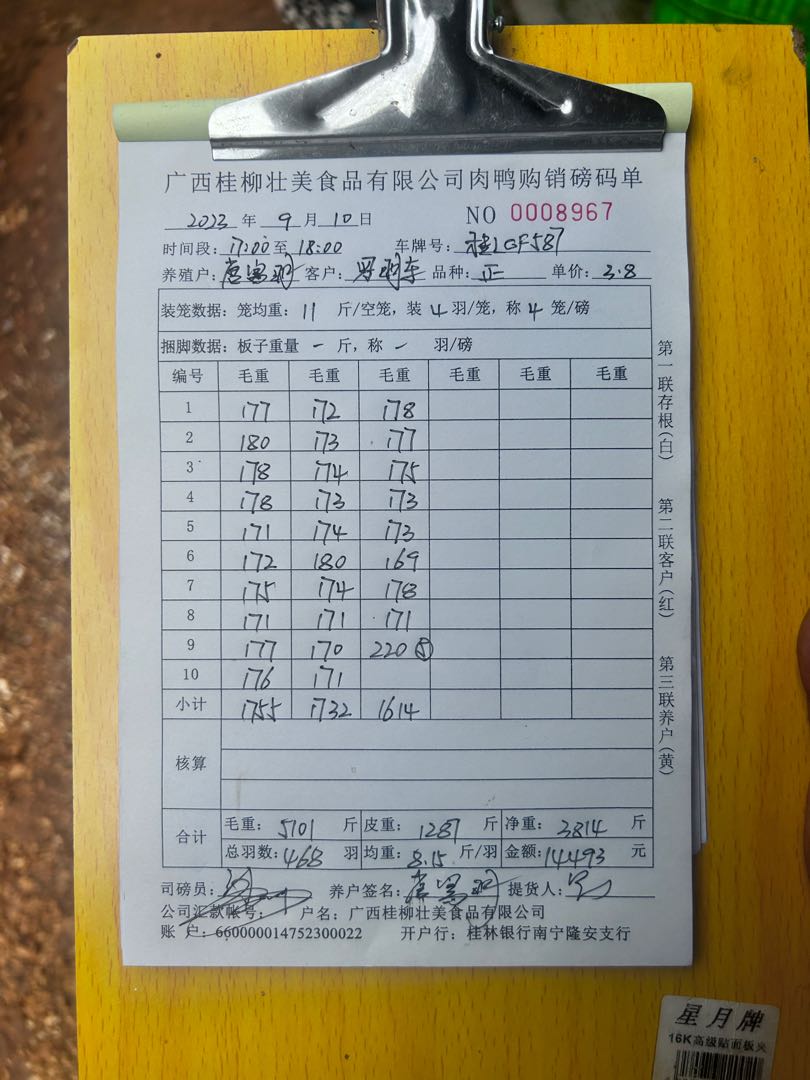 广西桂柳壮美食品有限公司肉鸭购销磅码单
2023 年 9 月 10 日 NO 0008967
时间段: 17:00 至 18:00 车牌号: 桂LGF587
养殖户: 客户: 品种: 正 单价: 3.8
装笼数据: 笼均重: 11 斤/空笼, 装 4 羽/笼, 称 4 笼/磅
捆脚数据: 板子重量 一 斤, 称 一 羽/磅
编号 毛重 毛重 毛重 毛重 毛重 毛重
1 177 172 178
2 180 173 177
3 178 174 175
4 178 173 173
5 171 174 173
6 172 180 169
7 175 174 178
8 171 171 171
9 177 170 220 ⑤
10 176 171
小计 1755 1732 1614
核算
合计 毛重: 5101 斤 皮重: 1287 斤 净重: 3814 斤
总羽数: 468 羽 均重: 8.15 斤/羽 金额: 14493 元
司磅员: 养户签名: 提货人:
公司汇款帐号: 户名: 广西桂柳壮美食品有限公司
账 户: 660000014752300022 开户行: 桂林银行南宁隆安支行
第一联存根(白) 第二联客户(红) 第三联养户(黄)
星月牌
16K高级贴面板夹